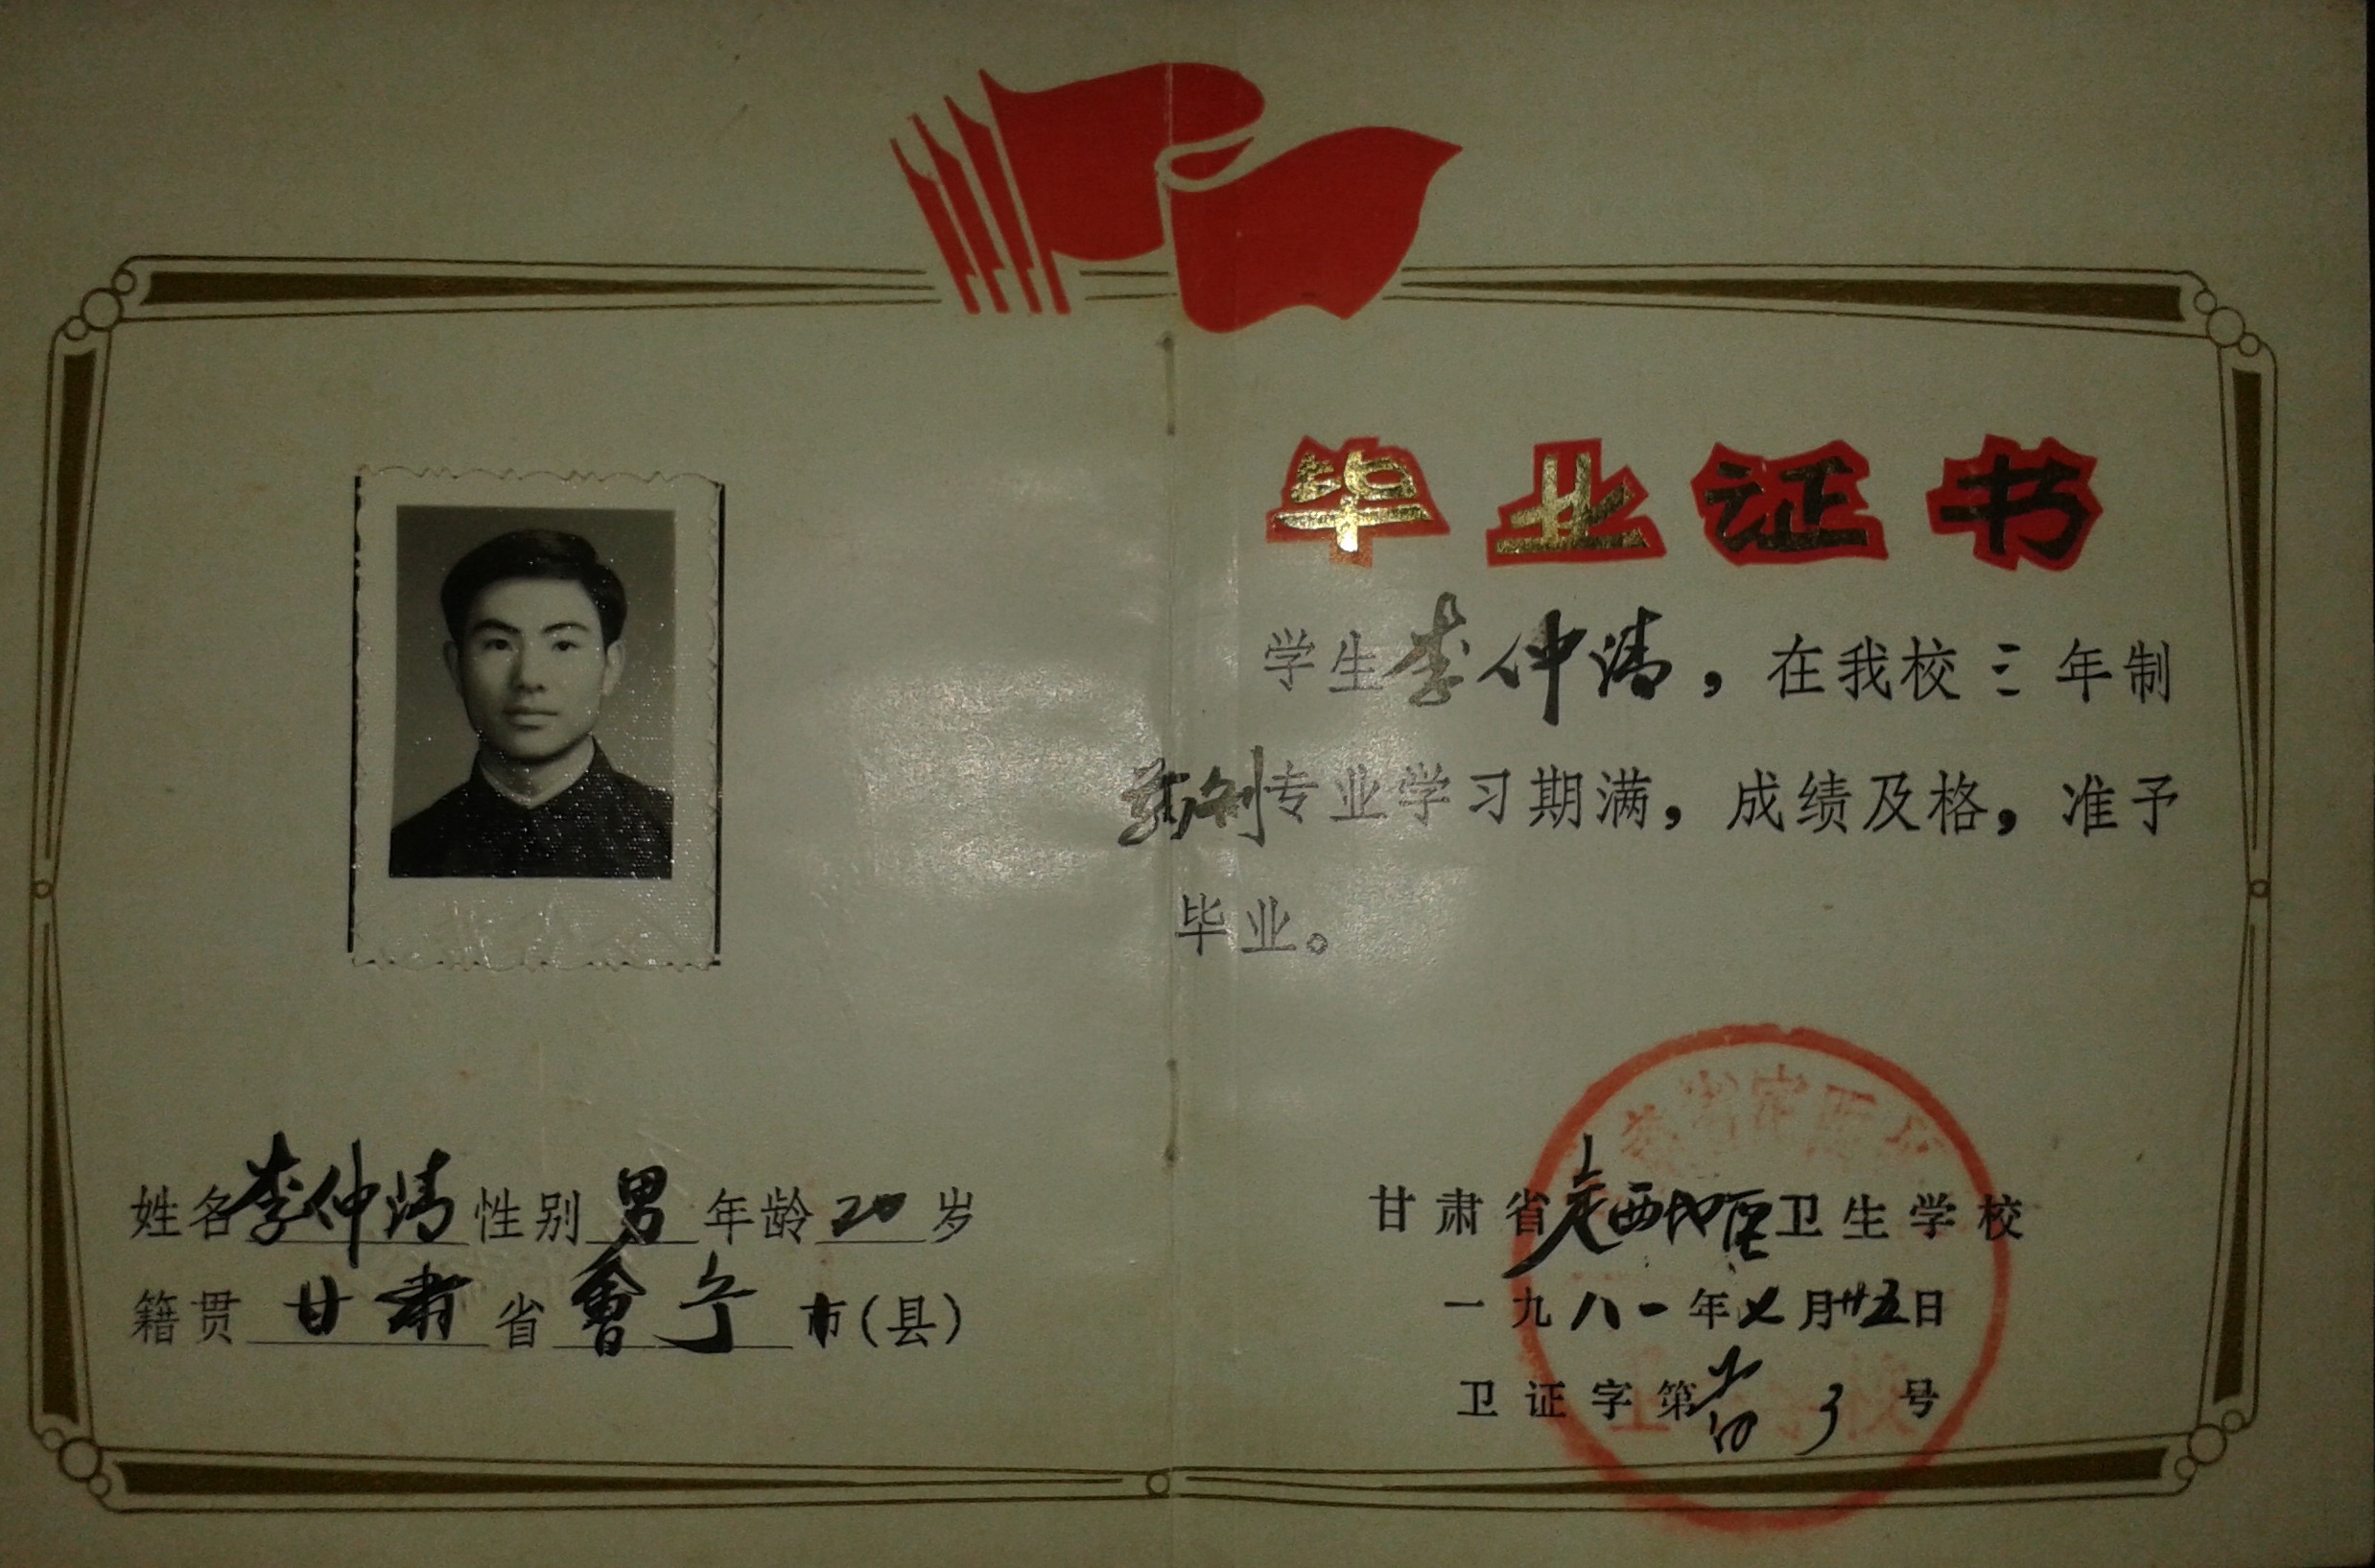 姓名李仲清性别男年龄20岁
籍贯甘肃省會宁市(县)
毕业证书
学生李仲清，在我校三年制
药剂专业学习期满，成绩及格，准予
毕业。
甘肃省定西地区卫生学校
一九八一年七月廿五日
卫证字第 3号